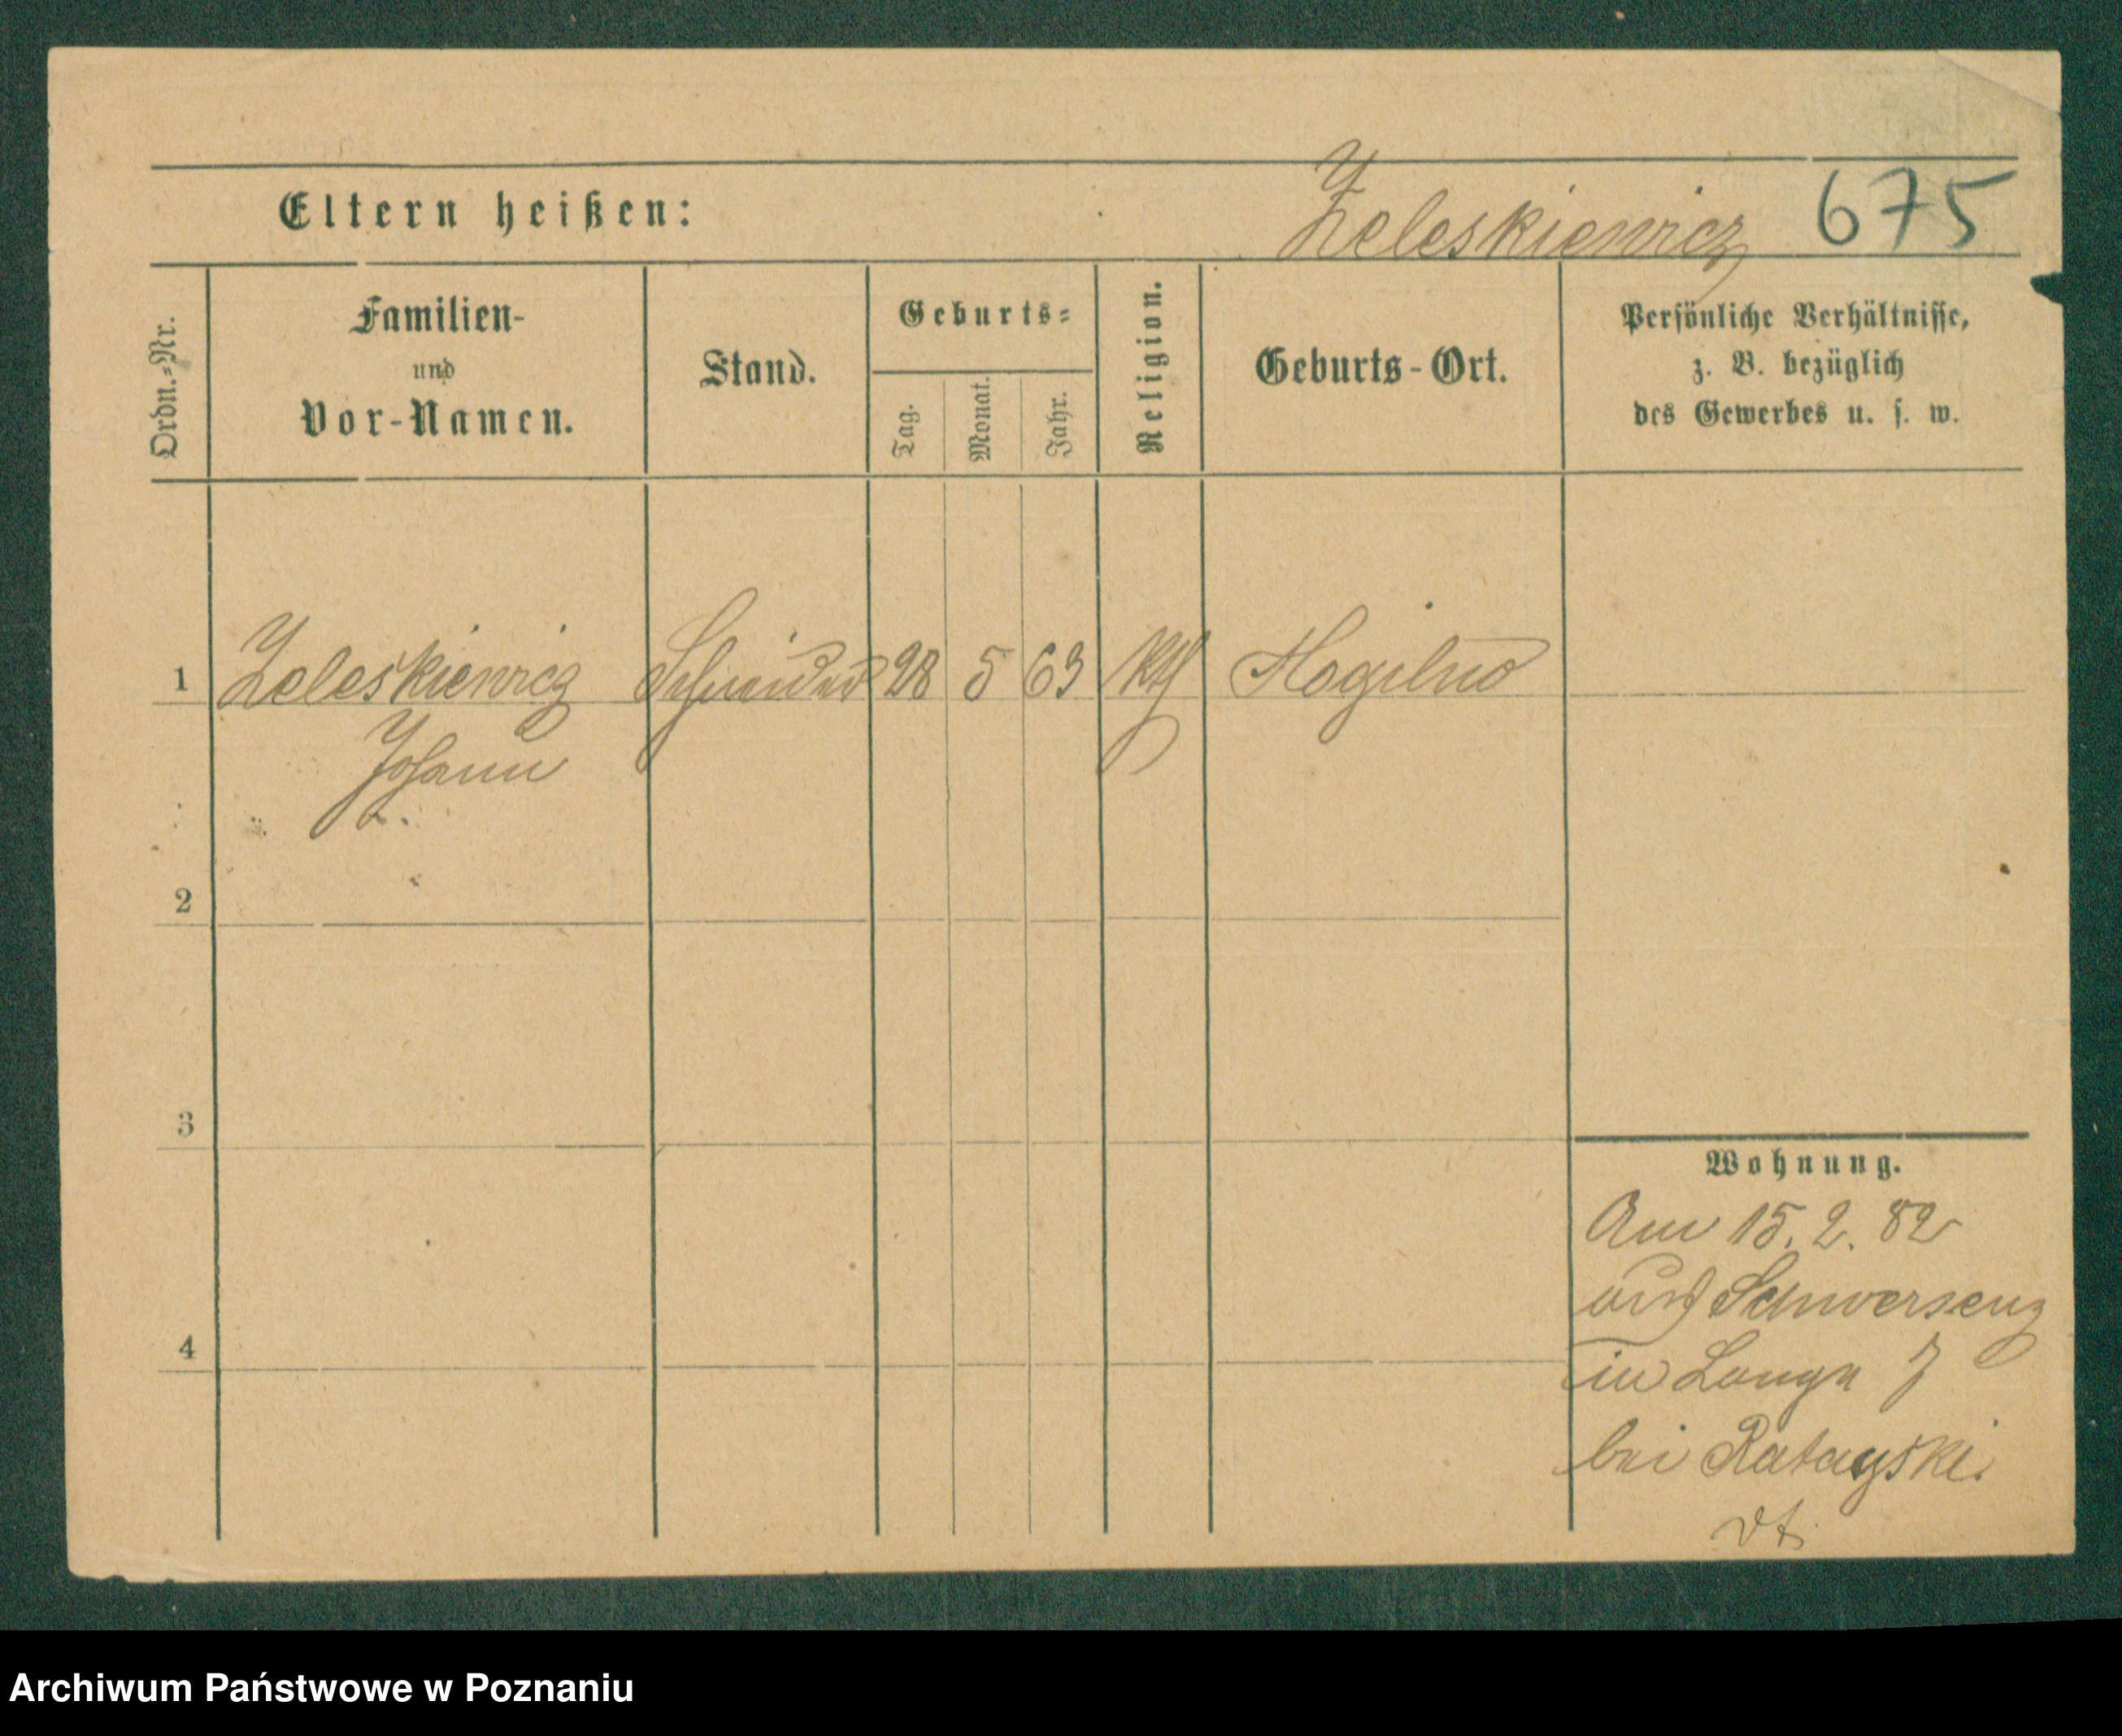 Eltern heißen:
Zeleskiewicz 675
Ordn.-Nr.
Familien-
und
Vor-Namen.
Stand.
Geburts-
Tag.
Monat.
Jahr.
Religion.
Geburts-Ort.
Persönliche Verhältnisse,
z. B. bezüglich
des Gewerbes u. s. w.
1 Zeleskiewicz Schneider 28 5 63 kth Mogilno
Johann
2
3
4
Wohnung.
Am 15. 2. 82
aus Schwersenz
in Lange 7
bei Ratayski.
Archiwum Państwowe w Poznaniu